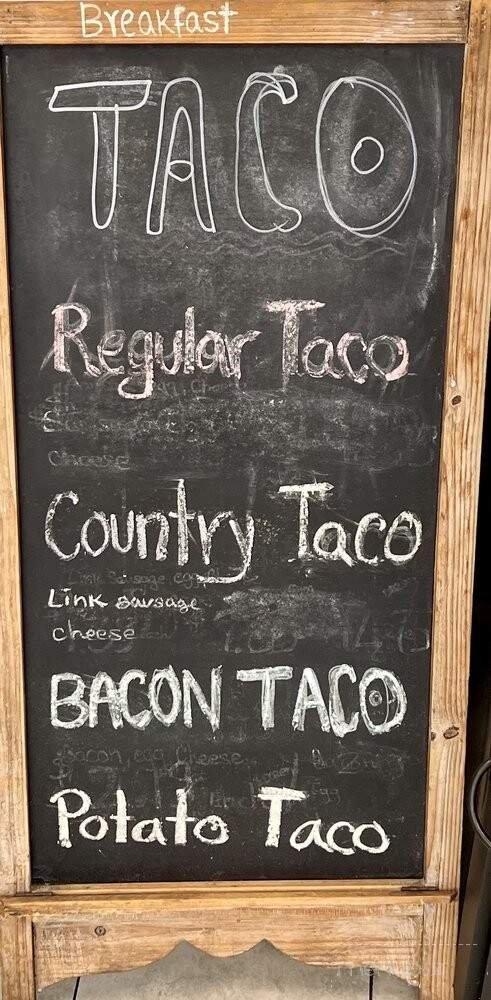 Breakfast
TACO
Regular Taco
cheese
Country Taco
Link Sausage egg
Link sausage
cheese
BACON TACO
Bacon, egg, Cheese
Potato Taco